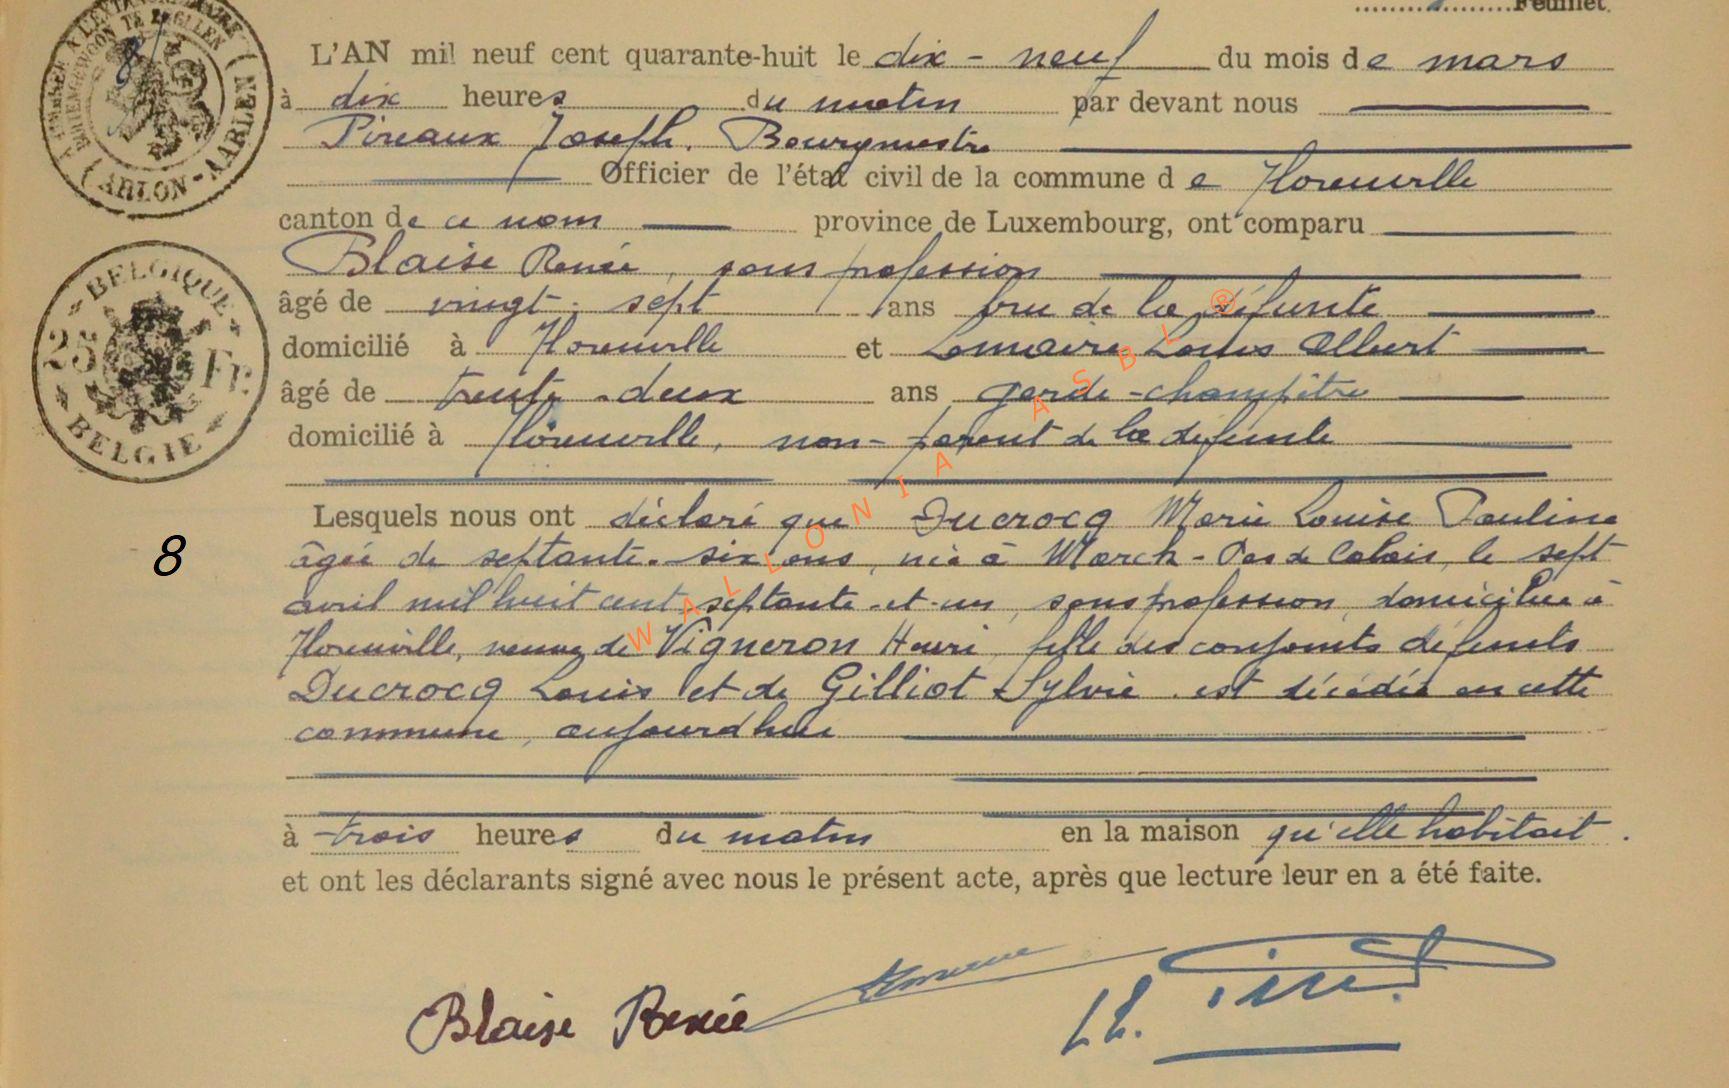 Feuillet.
L'AN mil neuf cent quarante-huit le dix - neuf du mois de mars
à dix heures du matin par devant nous
Pireaux Joseph, Bourgmestre
Officier de l'état civil de la commune de Florenville
canton de ce nom province de Luxembourg, ont comparu
Blaise Renée, sans profession
âgé de vingt-sept ans bru de la défunte
domicilié à Florenville et Lemaire Louis Albert
âgé de trente-deux ans garde-champêtre
domicilié à Florenville, non-parent de la défunte
Lesquels nous ont déclaré que Ducrocq Marie Louise Pauline
âgée de septante-six ans, née à Marck-Pas de Calais, le sept
avril mil huit cent septante-et-un, sans profession, domiciliée à
Florenville, veuve de Vigneron Henri, fille des conjoints défunts
Ducrocq Louis et de Gilliot Sylvie est décédée en cette
commune, aujourd'hui
à trois heures du matin en la maison qu'elle habitait.
et ont les déclarants signé avec nous le présent acte, après que lecture leur en a été faite.
Blaise Renée
ARLON-AARLEN
BELGIQUE
25 Fr.
BELGIE
8
WALLONIA ASBL ®